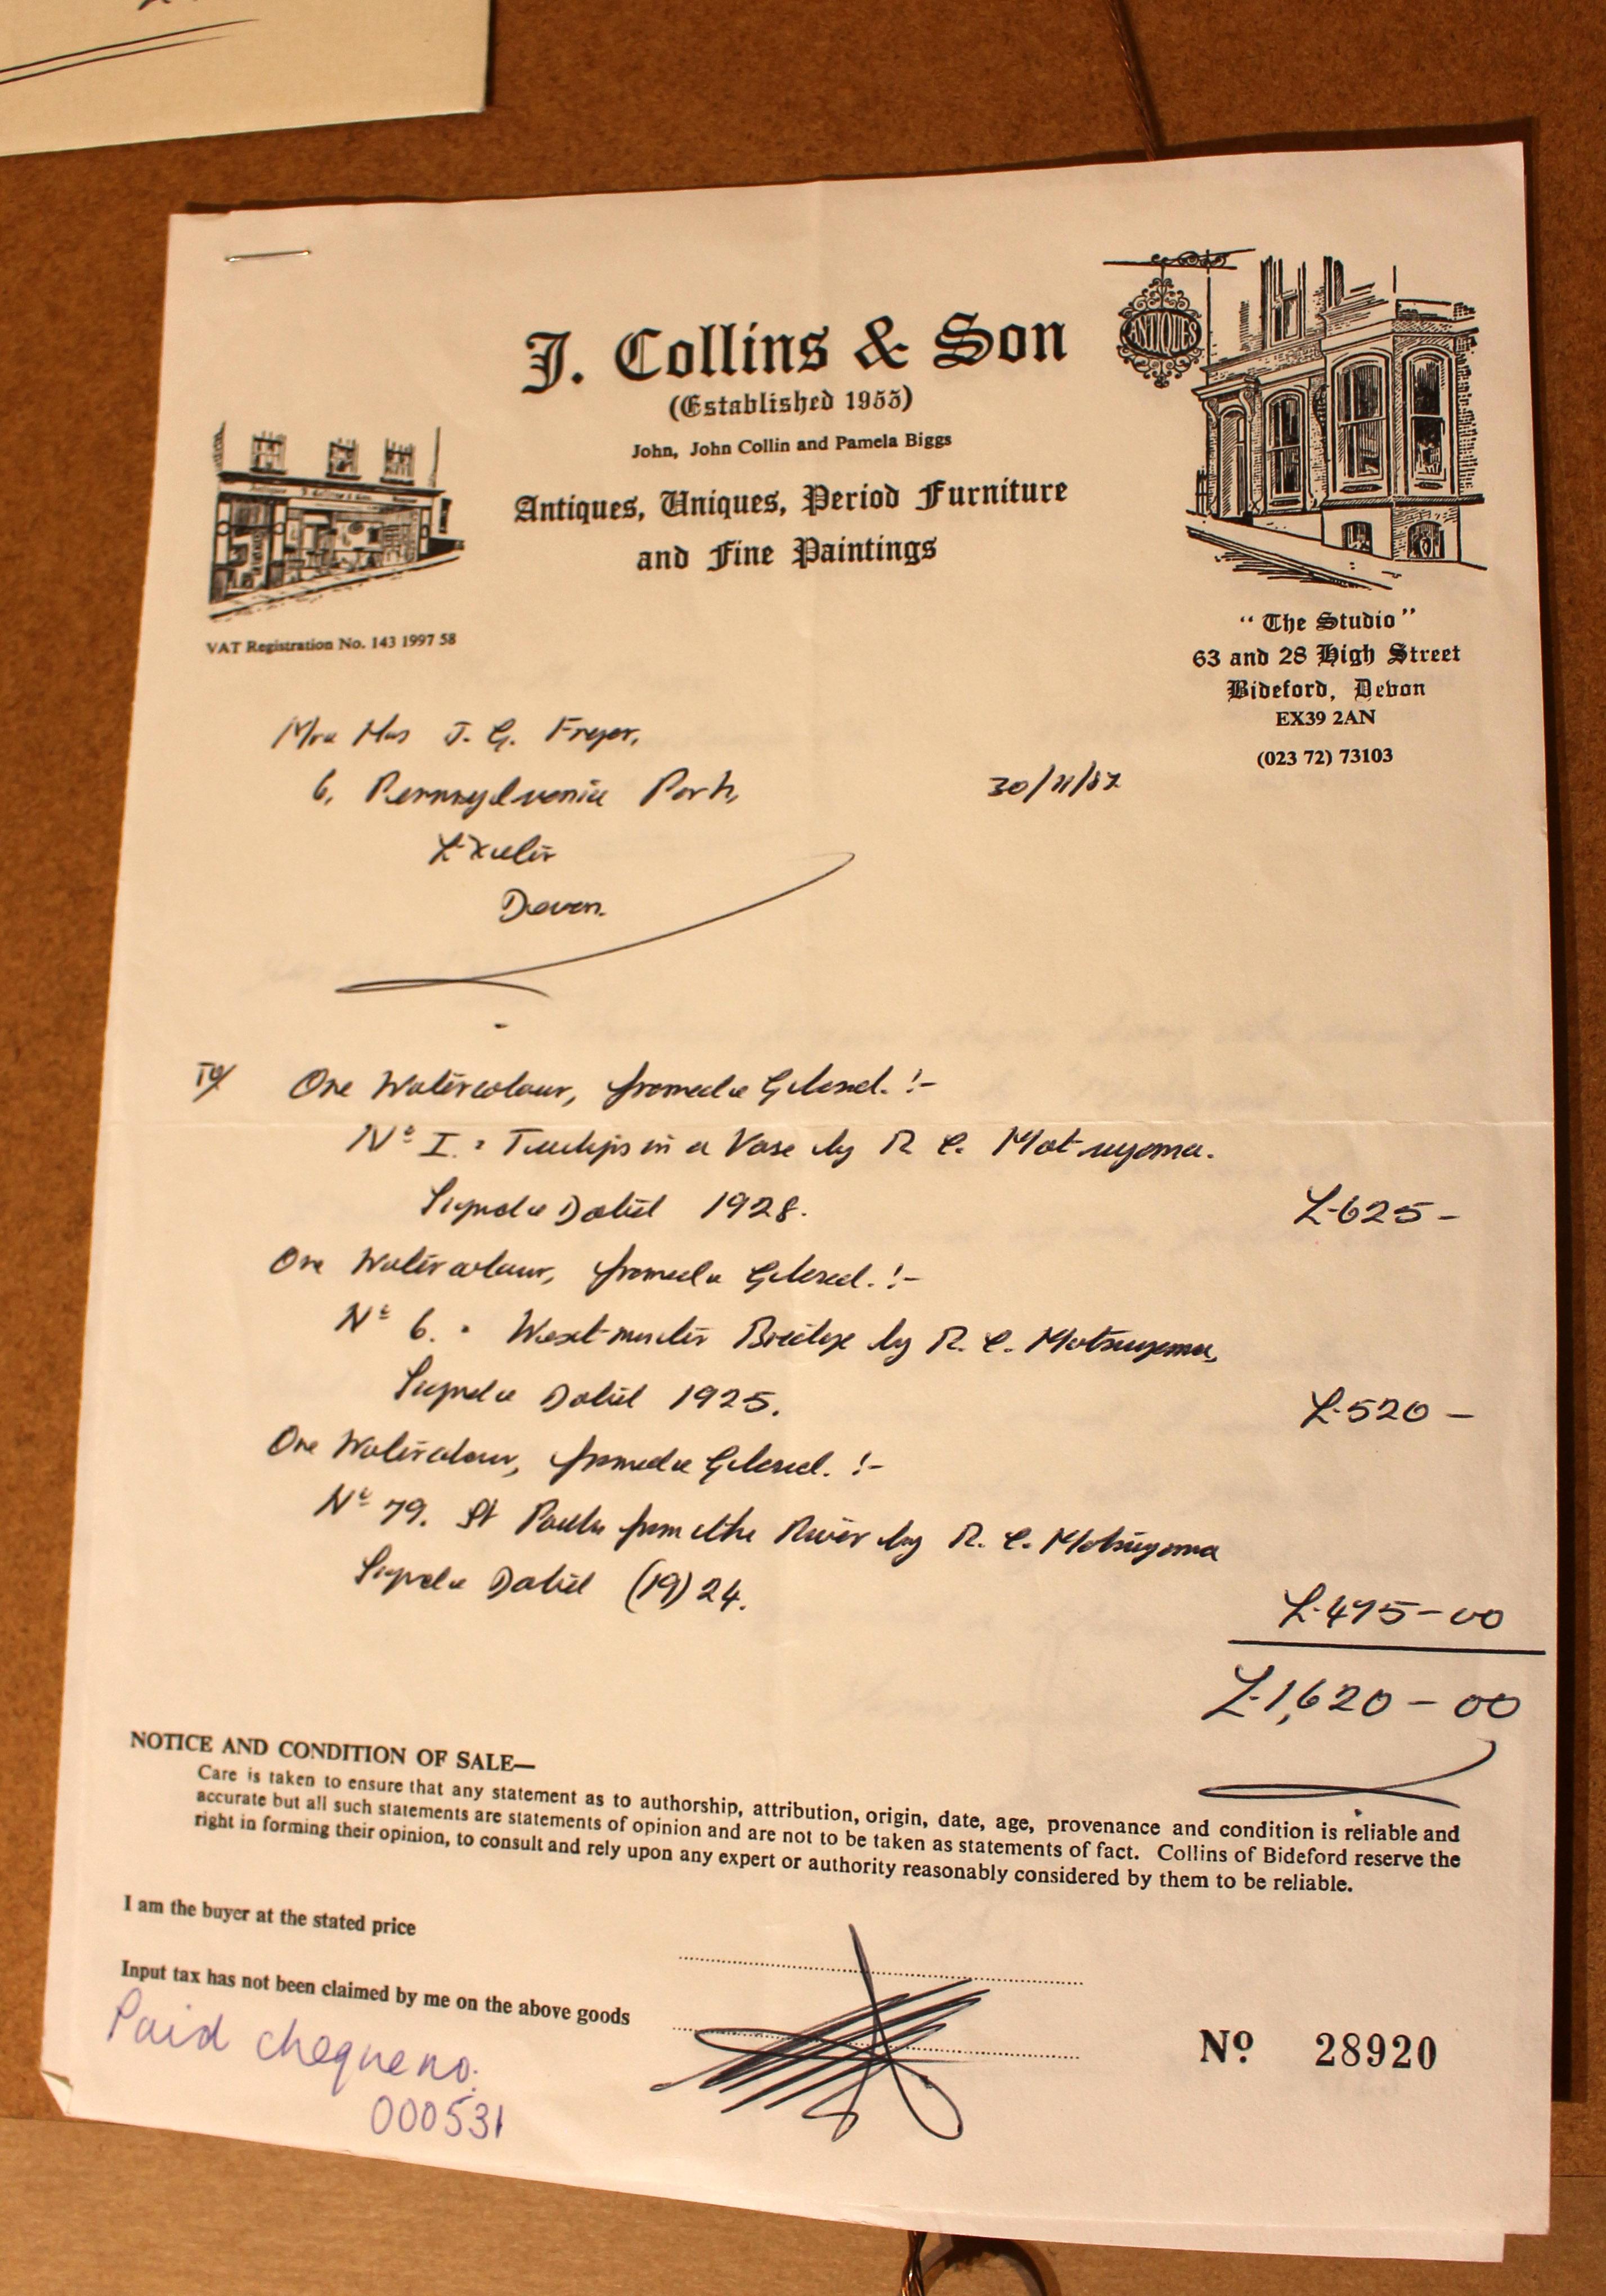 J. Collins & Son
(Established 1953)
John, John Collin and Pamela Biggs
Antiques, Uniques, Period Furniture
and Fine Paintings
ANTIQUES
VAT Registration No. 143 1997 58
"The Studio"
63 and 28 High Street
Bideford, Devon
EX39 2AN
(023 72) 73103
J. G. Fryer,
30/11/87
6, Pennsylvania Park,
Exeter
Devon.
To/ One Watercolour, framed & Glazed. :-
No I. Tulips in a Vase by R. C. Matsuyama.
Signed & Dated 1928.
£625-
One Watercolour, framed & Glazed. :-
No 6. Westminster Bridge by R. C. Matsuyama,
Signed & Dated 1925.
£520-
One Watercolour, framed & Glazed. :-
No 79. St Pauls from the River by R. C. Matsuyama
Signed & Dated (19)24.
£475-00
£1,620-00
NOTICE AND CONDITION OF SALE—
Care is taken to ensure that any statement as to authorship, attribution, origin, date, age, provenance and condition is reliable and
accurate but all such statements are statements of opinion and are not to be taken as statements of fact. Collins of Bideford reserve the
right in forming their opinion, to consult and rely upon any expert or authority reasonably considered by them to be reliable.
I am the buyer at the stated price
Input tax has not been claimed by me on the above goods
Paid cheque no.
000531
No. 28920